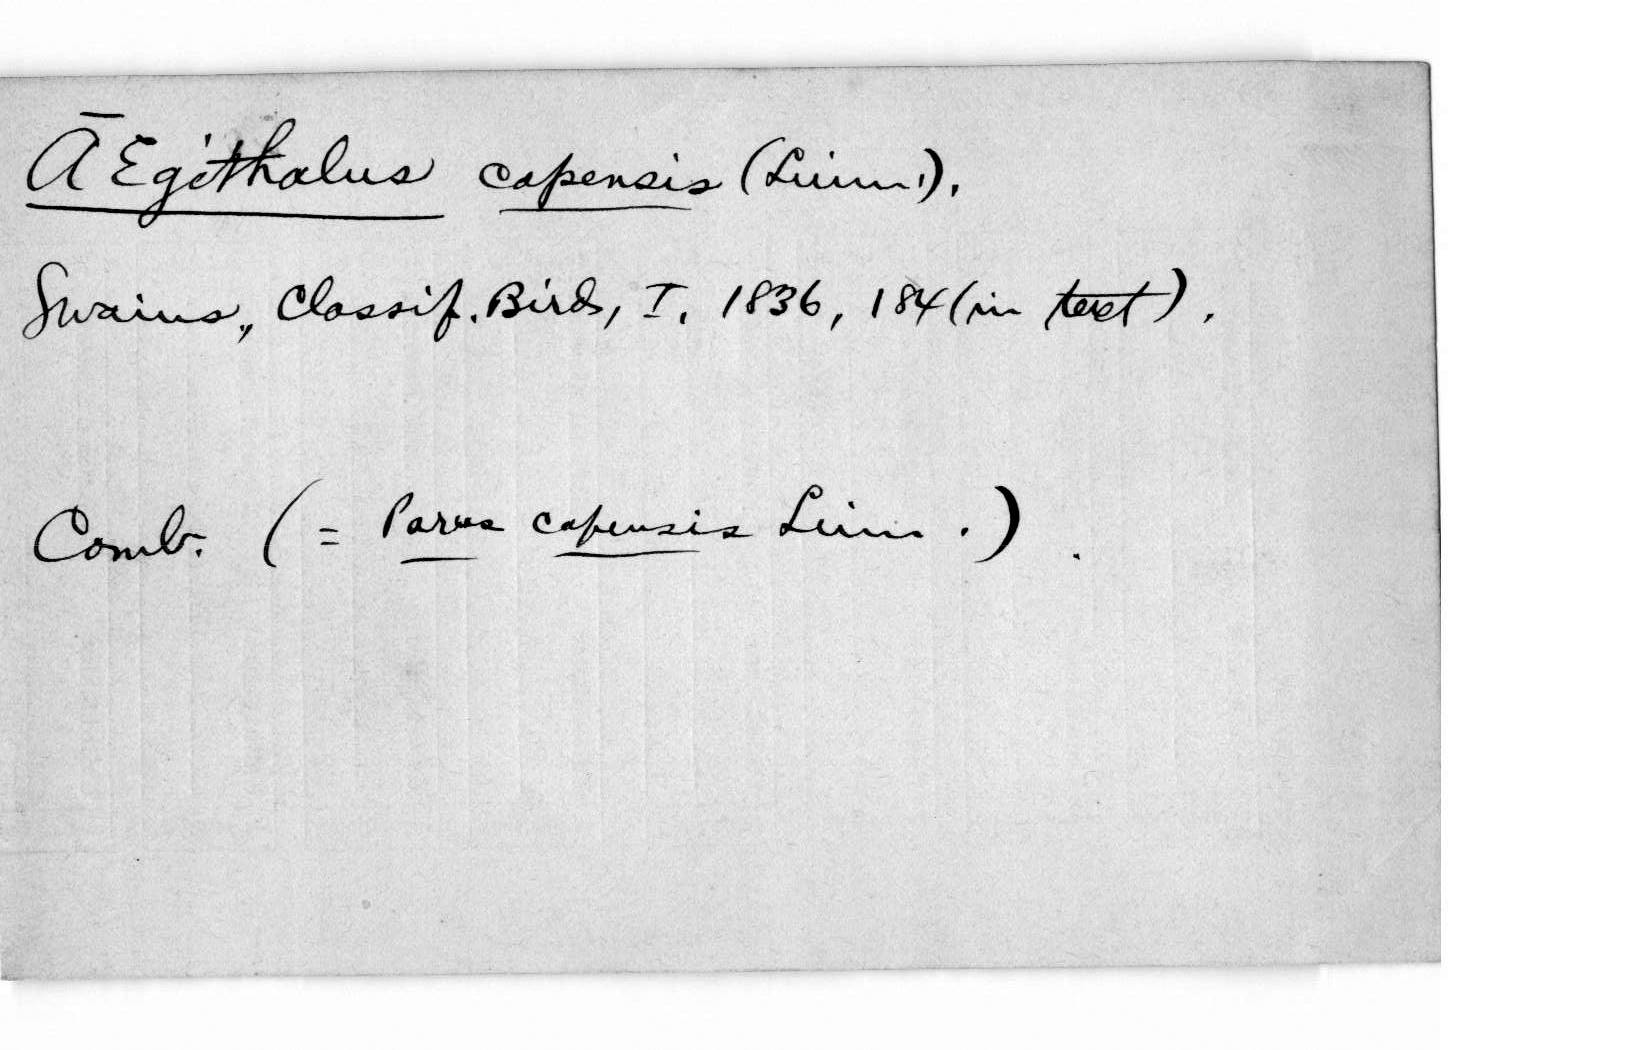 ĀEgithalus capensis (Linn.).
Swains., Classif. Birds, I, 1836, 184 (in text).
Comb. (= Parus capensis Linn.).